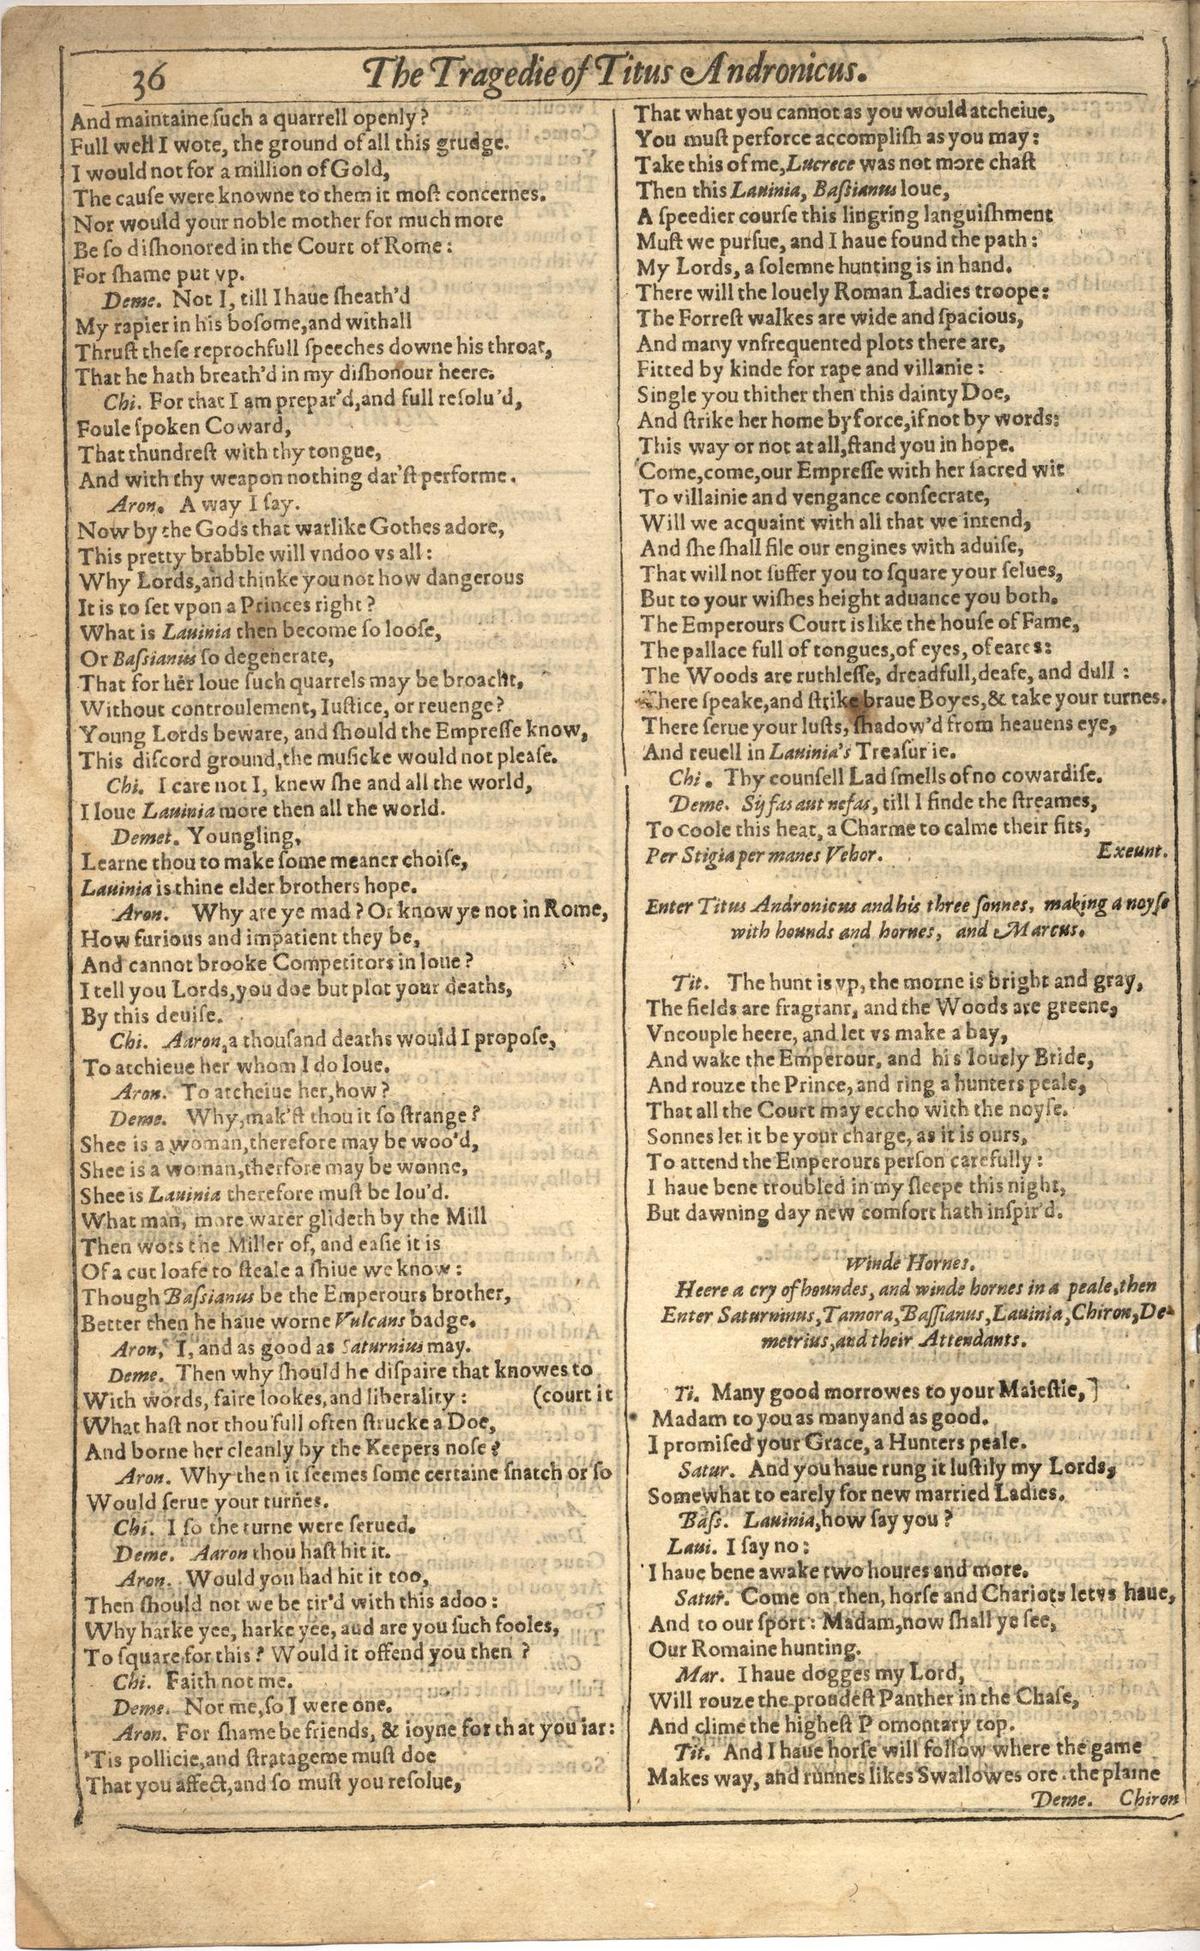 36
The Tragedie of Titus Andronicus.
And maintaine such a quarrell openly?
Full well I wote, the ground of all this grudge.
I would not for a million of Gold,
The cause were knowne to them it most concernes.
Nor would your noble mother for much more
Be so dishonored in the Court of Rome:
For shame put vp.
Deme. Not I, till I haue sheath'd
My rapier in his bosome,and withall
Thrust these reprochfull speeches downe his throat,
That he hath breath'd in my dishonour heere.
Chi. For that I am prepar'd,and full resolu'd,
Foule spoken Coward,
That thundrest with thy tongue,
And with thy weapon nothing dar'st performe.
Aron. A way I say.
Now by the Gods that warlike Gothes adore,
This pretty brabble will vndoo vs all:
Why Lords,and thinke you not how dangerous
It is to set vpon a Princes right?
What is Lauinia then become so loose,
Or Bassianus so degenerate,
That for her loue such quarrels may be broacht,
Without controulement, Iustice, or reuenge?
Young Lords beware, and should the Empresse know,
This discord ground,the musicke would not please.
Chi. I care not I, knew she and all the world,
I loue Lauinia more then all the world.
Demet. Youngling,
Learne thou to make some meaner choise,
Lauinia is thine elder brothers hope.
Aron. Why are ye mad? Or know ye not in Rome,
How furious and impatient they be,
And cannot brooke Competitors in loue?
I tell you Lords,you doe but plot your deaths,
By this deuise.
Chi. Aaron,a thousand deaths would I propose,
To atchieue her whom I do loue.
Aron. To atcheiue her,how?
Deme. Why,mak'st thou it so strange?
Shee is a woman,therefore may be woo'd,
Shee is a woman,therfore may be wonne,
Shee is Lauinia therefore must be lou'd.
What man, more water glideth by the Mill
Then wots the Miller of, and easie it is
Of a cut loafe to steale a shiue we know:
Though Bassianus be the Emperours brother,
Better then he haue worne Vulcans badge.
Aron, I, and as good as Saturnius may.
Deme. Then why should he dispaire that knowes to
With words, faire lookes,and liberality: (court it
What hast not thou full often strucke a Doe,
And borne her cleanly by the Keepers nose?
Aron. Why then it seemes some certaine snatch or so
Would serue your turnes.
Chi. I so the turne were serued.
Deme. Aaron thou hast hit it.
Aron. Would you had hit it too,
Then should not we be tir'd with this adoo:
Why harke yee, harke yee, aud are you such fooles,
To square for this? Would it offend you then?
Chi. Faith not me.
Deme. Nor me,so I were one.
Aron. For shame be friends, & ioyne for that you iar:
'Tis pollicie,and stratageme must doe
That you affect,and so must you resolue,
That what you cannot as you would atcheiue,
You must perforce accomplish as you may:
Take this of me,Lucrece was not more chast
Then this Lauinia, Bassianus loue,
A speedier course this lingring languishment
Must we pursue, and I haue found the path:
My Lords, a solemne hunting is in hand.
There will the louely Roman Ladies troope:
The Forrest walkes are wide and spacious,
And many vnfrequented plots there are,
Fitted by kinde for rape and villanie:
Single you thither then this dainty Doe,
And strike her home by force,if not by words:
This way or not at all,stand you in hope.
Come,come,our Empresse with her sacred wit
To villainie and vengance consecrate,
Will we acquaint with all that we intend,
And she shall file our engines with aduise,
That will not suffer you to square your selues,
But to your wishes height aduance you both.
The Emperours Court is like the house of Fame,
The pallace full of tongues,of eyes, of eares:
The Woods are ruthlesse, dreadfull,deafe, and dull:
There speake,and strike braue Boyes,& take your turnes.
There serue your lusts, shadow'd from heauens eye,
And reuell in Lauinia's Treasurie.
Chi. Thy counsell Lad smells of no cowardise.
Deme. Sij fas aut nefas, till I finde the streames,
To coole this heat, a Charme to calme their fits,
Per Stigia per manes Vehor. Exeunt.
Enter Titus Andronicus and his three sonnes, making a noyse
with hounds and hornes, and Marcus.
Tit. The hunt is vp, the morne is bright and gray,
The fields are fragrant, and the Woods are greene,
Vncouple heere, and let vs make a bay,
And wake the Emperour, and his louely Bride,
And rouze the Prince, and ring a hunters peale,
That all the Court may eccho with the noyse.
Sonnes let it be your charge, as it is ours,
To attend the Emperours person carefully:
I haue bene troubled in my sleepe this night,
But dawning day new comfort hath inspir'd.
Winde Hornes.
Heere a cry of houndes, and winde hornes in a peale,then
Enter Saturninus,Tamora,Bassianus,Lauinia,Chiron,De-
metrius,and their Attendants.
Ti. Many good morrowes to your Maiestie,
Madam to you as many and as good.
I promised your Grace, a Hunters peale.
Satur. And you haue rung it lustily my Lords,
Somewhat to earely for new married Ladies.
Bass. Lauinia,how say you?
Laui. I say no:
I haue bene awake two houres and more.
Satur. Come on then, horse and Chariots let vs haue,
And to our sport: Madam,now shall ye see,
Our Romaine hunting.
Mar. I haue dogges my Lord,
Will rouze the proudest Panther in the Chase,
And clime the highest P omontary top.
Tit. And I haue horse will follow where the game
Makes way, and runnes likes Swallowes ore the plaine
Deme. Chiron